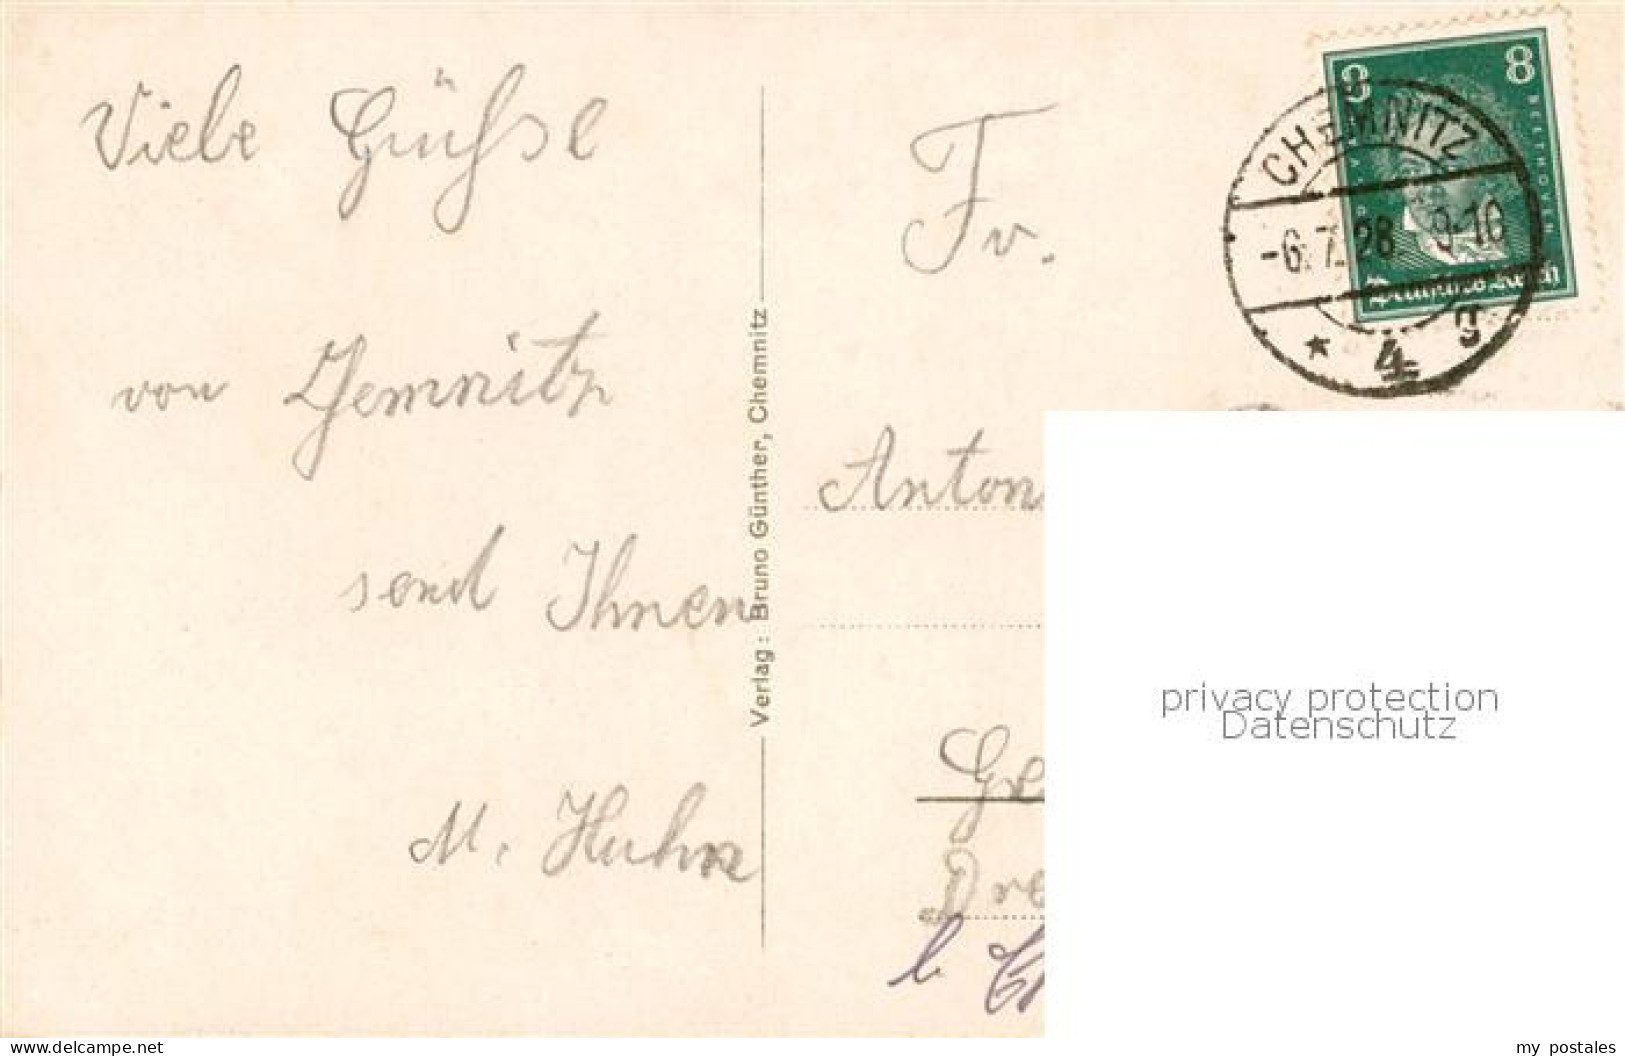 Viele Grüße
von Jemnitz
send Ihnen
M. Huhn
Verlag: Bruno Günther, Chemnitz
8 8
BEETHOVEN
Deutsches Reich
CHEMNITZ
-6.7.28 9-10
* 4 g
Fr.
Anton
Ge
Dre
b. Ch
privacy protection
Datenschutz
www.delcampe.net
my_postales